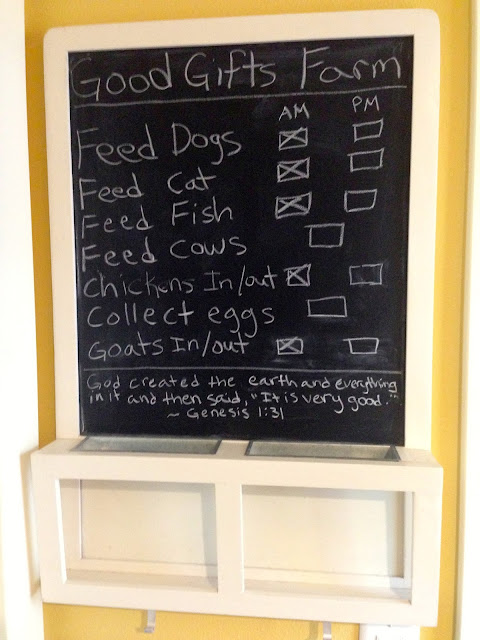 Good Gifts Farm
AM PM
Feed Dogs
Feed Cat
Feed Fish
Feed cows
Chickens In/out
Collect eggs
Goats In/out
God created the earth and everything
in it and then said, "It is very good."
~ Genesis 1:31